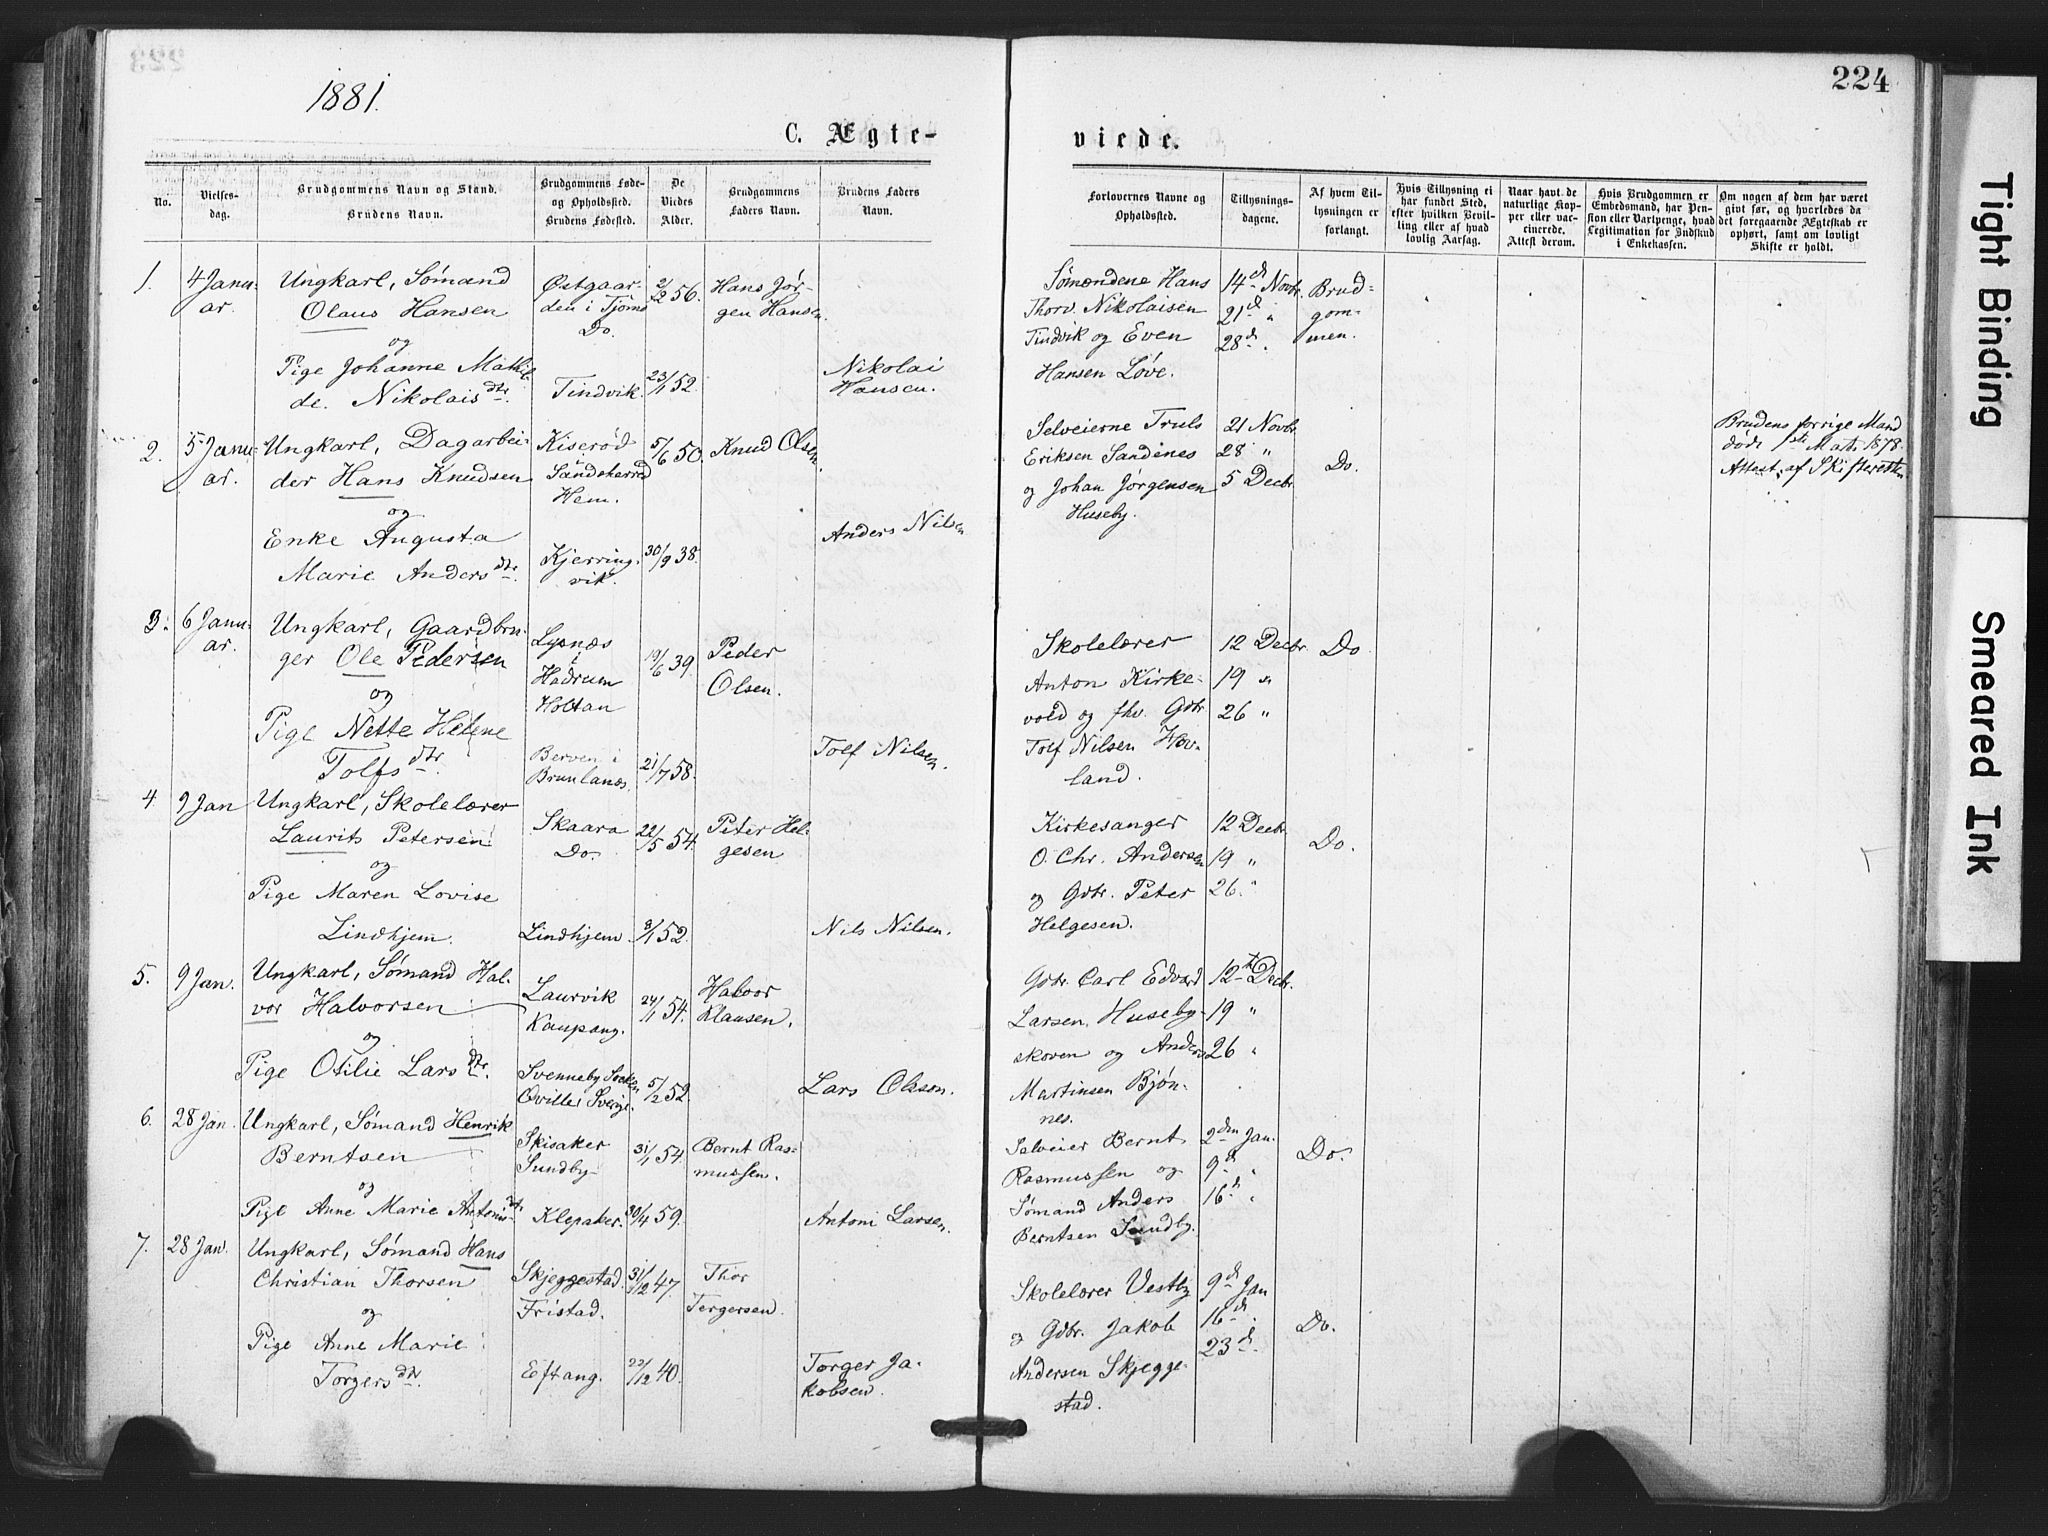 1881.
224
C. Ægte-
viede.
No.
Vielses-
dag.
Brudgommens Navn og Stand.
Brudens Navn.
Brudgommens Føde-
og Opholdssted.
Brudens Fødested.
De
Viedes
Alder.
Brudgommens
Faders Navn.
Brudens Faders
Navn.
Forlovernes Navne og
Opholdssted.
Tillysnings-
dagene.
Af hvem Til-
lysningen er
forlangt.
Hvis Tillysning ei
har fundet Sted,
efter hvilken Bevil-
ling eller af hvad
lovlig Aarsag.
Naar havt de
naturlige Kop-
per eller vac-
cinerede.
Attest derom.
Hvis Brudgommen er
Embedsmand, har Pen-
sion eller Vartpenge, hvad
Legitimation for Indskud
i Enkekassen.
Om nogen af dem har været
givt før, og hvorledes da
det foregaaende Ægteskab er
ophørt, samt om lovligt
Skifte er holdt.
1.
4 Janu-
ar.
Ungkarl, Sømand
Olaus Hansen
og
Pige Johanne Mathil-
de. Nikolaisdtr.
Østgaar-
den i Tjømø
Do.
Tindvik.
2/12 56.
23/1 52.
Hans Jør-
gen Hansen.
Nikolai
Hansen.
Sømændene Hans
Thorv. Nikolaisen
Tindvik og Even
Hansen Løve.
14d Novbr.
21d "
28d "
Brud-
gom-
men.
2.
5 Janu-
ar.
Ungkarl, Dagarbei-
der Hans Knudsen
og
Enke Augusta
Marie Andersdtr.
Kiserød
Sandeherred
Hem.
Kjerring-
vik.
5/6 50.
30/9 38.
Knud Olsen.
Anders Nilsen
Selveierne Truls
Eriksen Sandenes
og Johan Jørgensen
Huseby.
21 Novbr.
28 "
5 Decbr.
Do.
Brudens forrige Mand
døde 1ste Mats 1878.
Attest af Skifteretten
3.
6 Janu-
ar.
Ungkarl, Gaardbru-
ger Ole Pedersen
og
Pige Nette Helene
Tolfsdtr.
Lysnæs
i
Hedrum
Holtan
Berven i
Brunlanæs.
19/6 39.
21/7 58.
Peder
Olsen.
Tolf Nilsen.
Skolelærer
Anton Kirke-
vold og fhv. Gdbr.
Tolf Nilsen Hov-
land.
12 Decbr.
19 "
26 "
Do
4.
9 Jan
Ungkarl, Skolelærer
Laurits Petersen
og
Pige Maren Lovise
Lindhjem.
Skaara
Do.
Lindhjem.
22/5 54.
8/1 52.
Peter Hel-
gesen
Nils Nilsen.
Kirkesanger
O. Chr. Andersen
og Gdbr. Peter
Helgesen.
12 Decbr.
19 "
26 "
Do.
5.
9 Jan.
Ungkarl, Sømand Hal-
vor Halvorsen
og
Pige Otilie Larsdtr.
Laurvik
Kaupang.
Svenneby Socken
Qville i Sverige.
24/1 54.
5/2 52.
Halvor
Klausen.
Lars Olsson.
Gdbr. Carl Edvard
Larsen, Huseby-
skoven og Anders
Martinsen Bjøn-
nes.
12te Decbr.
19 "
26 "
6.
28 Jan.
Ungkarl, Sømand Henrik
Berntsen
og
Pige Anne Marie Antonidtr.
Skisaker
Sundby
Klepaker.
31/1 54.
30/4 59.
Bernt Ras-
mussen.
Antoni Larsen.
Selveier Bernt
Rasmussen og
Sømand Anders
Berntsen Sundby.
2den Jan.
9d "
16d "
Do.
7.
28 Jan.
Ungkarl, Sømand Hans
Christian Thorsen
og
Pige Anne Marie
Torgersdtr.
Skjeggestad.
Fristad.
Eftang.
31/12 47.
22/12 40.
Thor
Tergersen.
Torger Ja-
kobsen.
Skolelærer Vestby
og Gdbr. Jakob
Andersen Skjegge-
stad.
9d Jan
16d "
23d.
Do.
Tight Binding
Smeared Ink